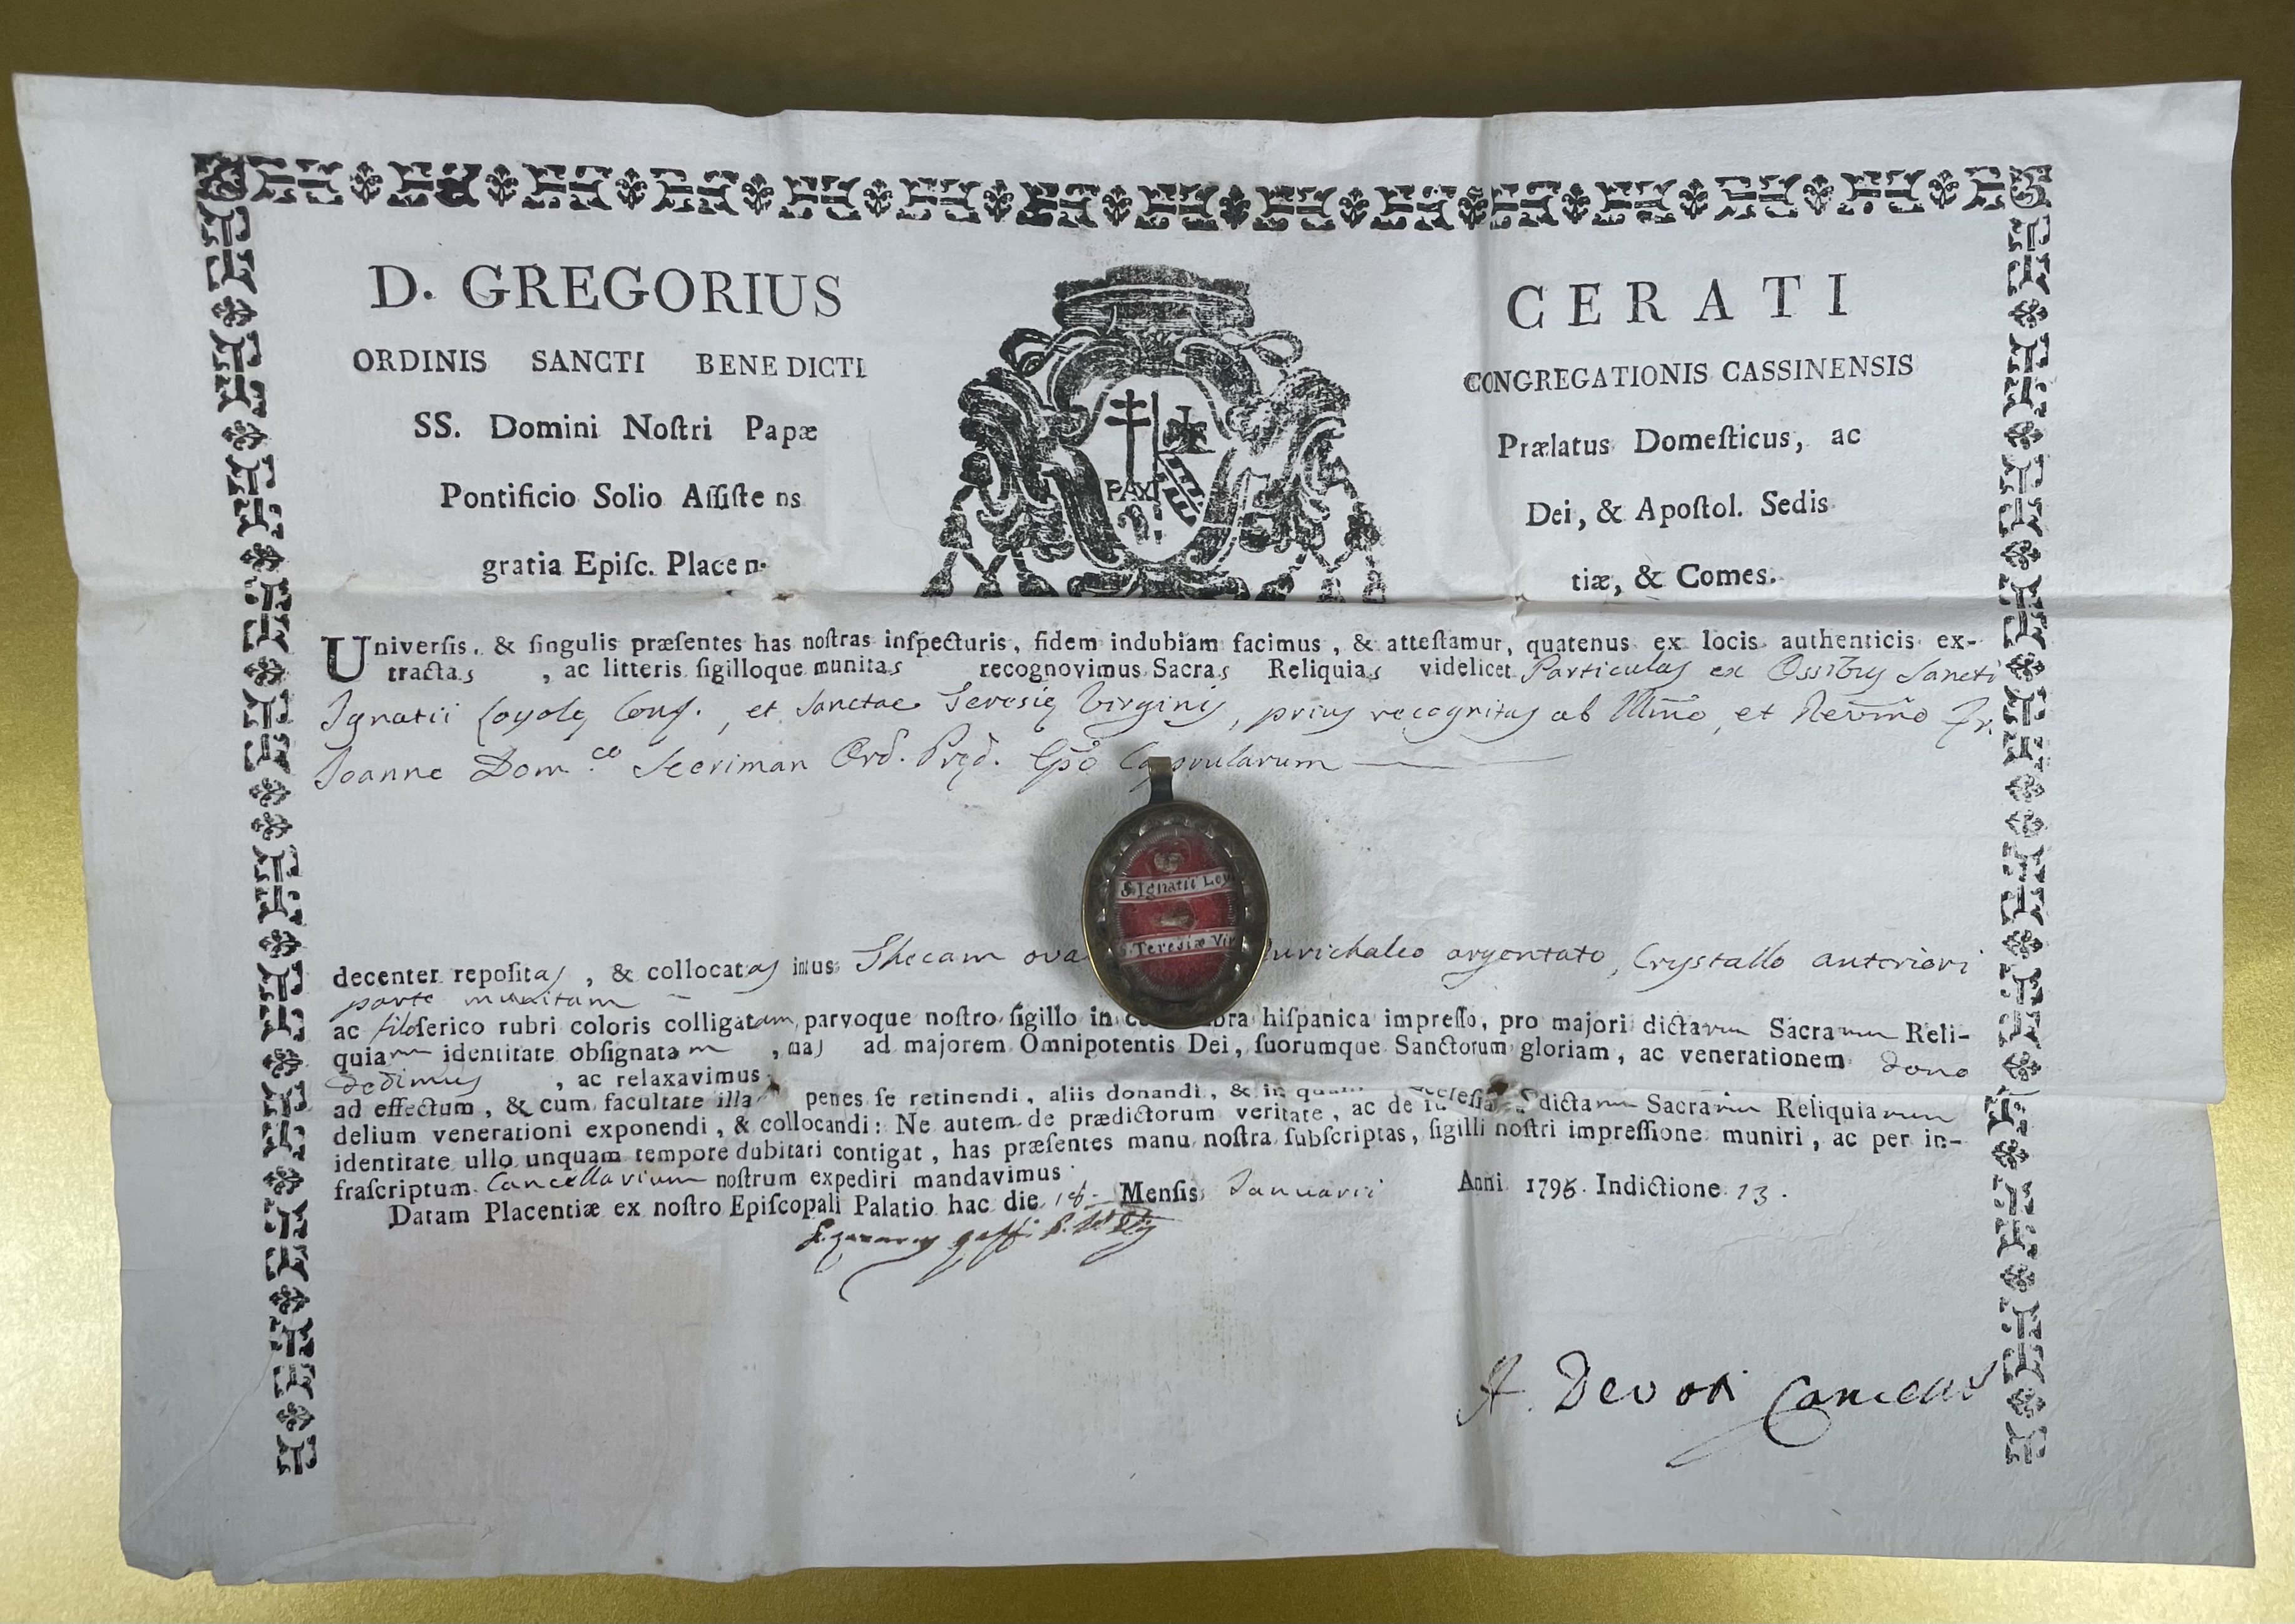 D. GREGORIUS CERATI
ORDINIS SANCTI BENEDICTI CONGREGATIONIS CASSINENSIS
SS. Domini Noſtri Papæ Prælatus Domeſticus, ac
Pontificio Solio Aſſiſtens Dei, & Apoſtol. Sedis
gratia Epiſc. Placen- tiæ, & Comes.
PAX
Univerſis, & ſingulis præſentes has noſtras inſpecturis, fidem indubiam facimus, & atteſtamur, quatenus ex locis authenticis ex-
tractas, ac litteris ſigilloque munitas recognovimus Sacras Reliquias videlicet Particulas ex Ossibus Sancti
Ignatii Loyolę Conf., et Sanctae Teresię Virginis, prius recognitas ab Illmo, et Revmo Fr.
Joanne Dom.co Sceriman Ord. Pręd. Epo
S. Ignatii Loy
S. Teresiæ Vir
decenter repoſitas, & collocatas intus Thecam ova urichalco argentato, Crystallo anteriori
parte munitam
ac filo ſerico rubri coloris colligatam, parvoque noſtro ſigillo in bra hiſpanica impreſſo, pro majori dictarum Sacrarum Reli-
quiarum identitate obſignatam, as ad majorem Omnipotentis Dei, ſuorumque Sanctorum gloriam, ac venerationem dono
dedimus, ac relaxavimus
ad effectum, & cum facultate illa penes ſe retinendi, aliis donandi, & in eccleſia dictarum Sacrarum Reliquiarum
delium venerationi exponendi, & collocandi: Ne autem de prædictorum veritate, ac de
identitate ullo unquam tempore dubitari contigat, has præſentes manu noſtra ſubſcriptas, ſigilli noſtri impreſſione muniri, ac per in-
fraſcriptum Cancellarium noſtrum expediri mandavimus
Datam Placentiæ ex noſtro Epiſcopali Palatio hac die Menſis Januarii Anni 1795. Indictione 13.
A. Devoti Cancell